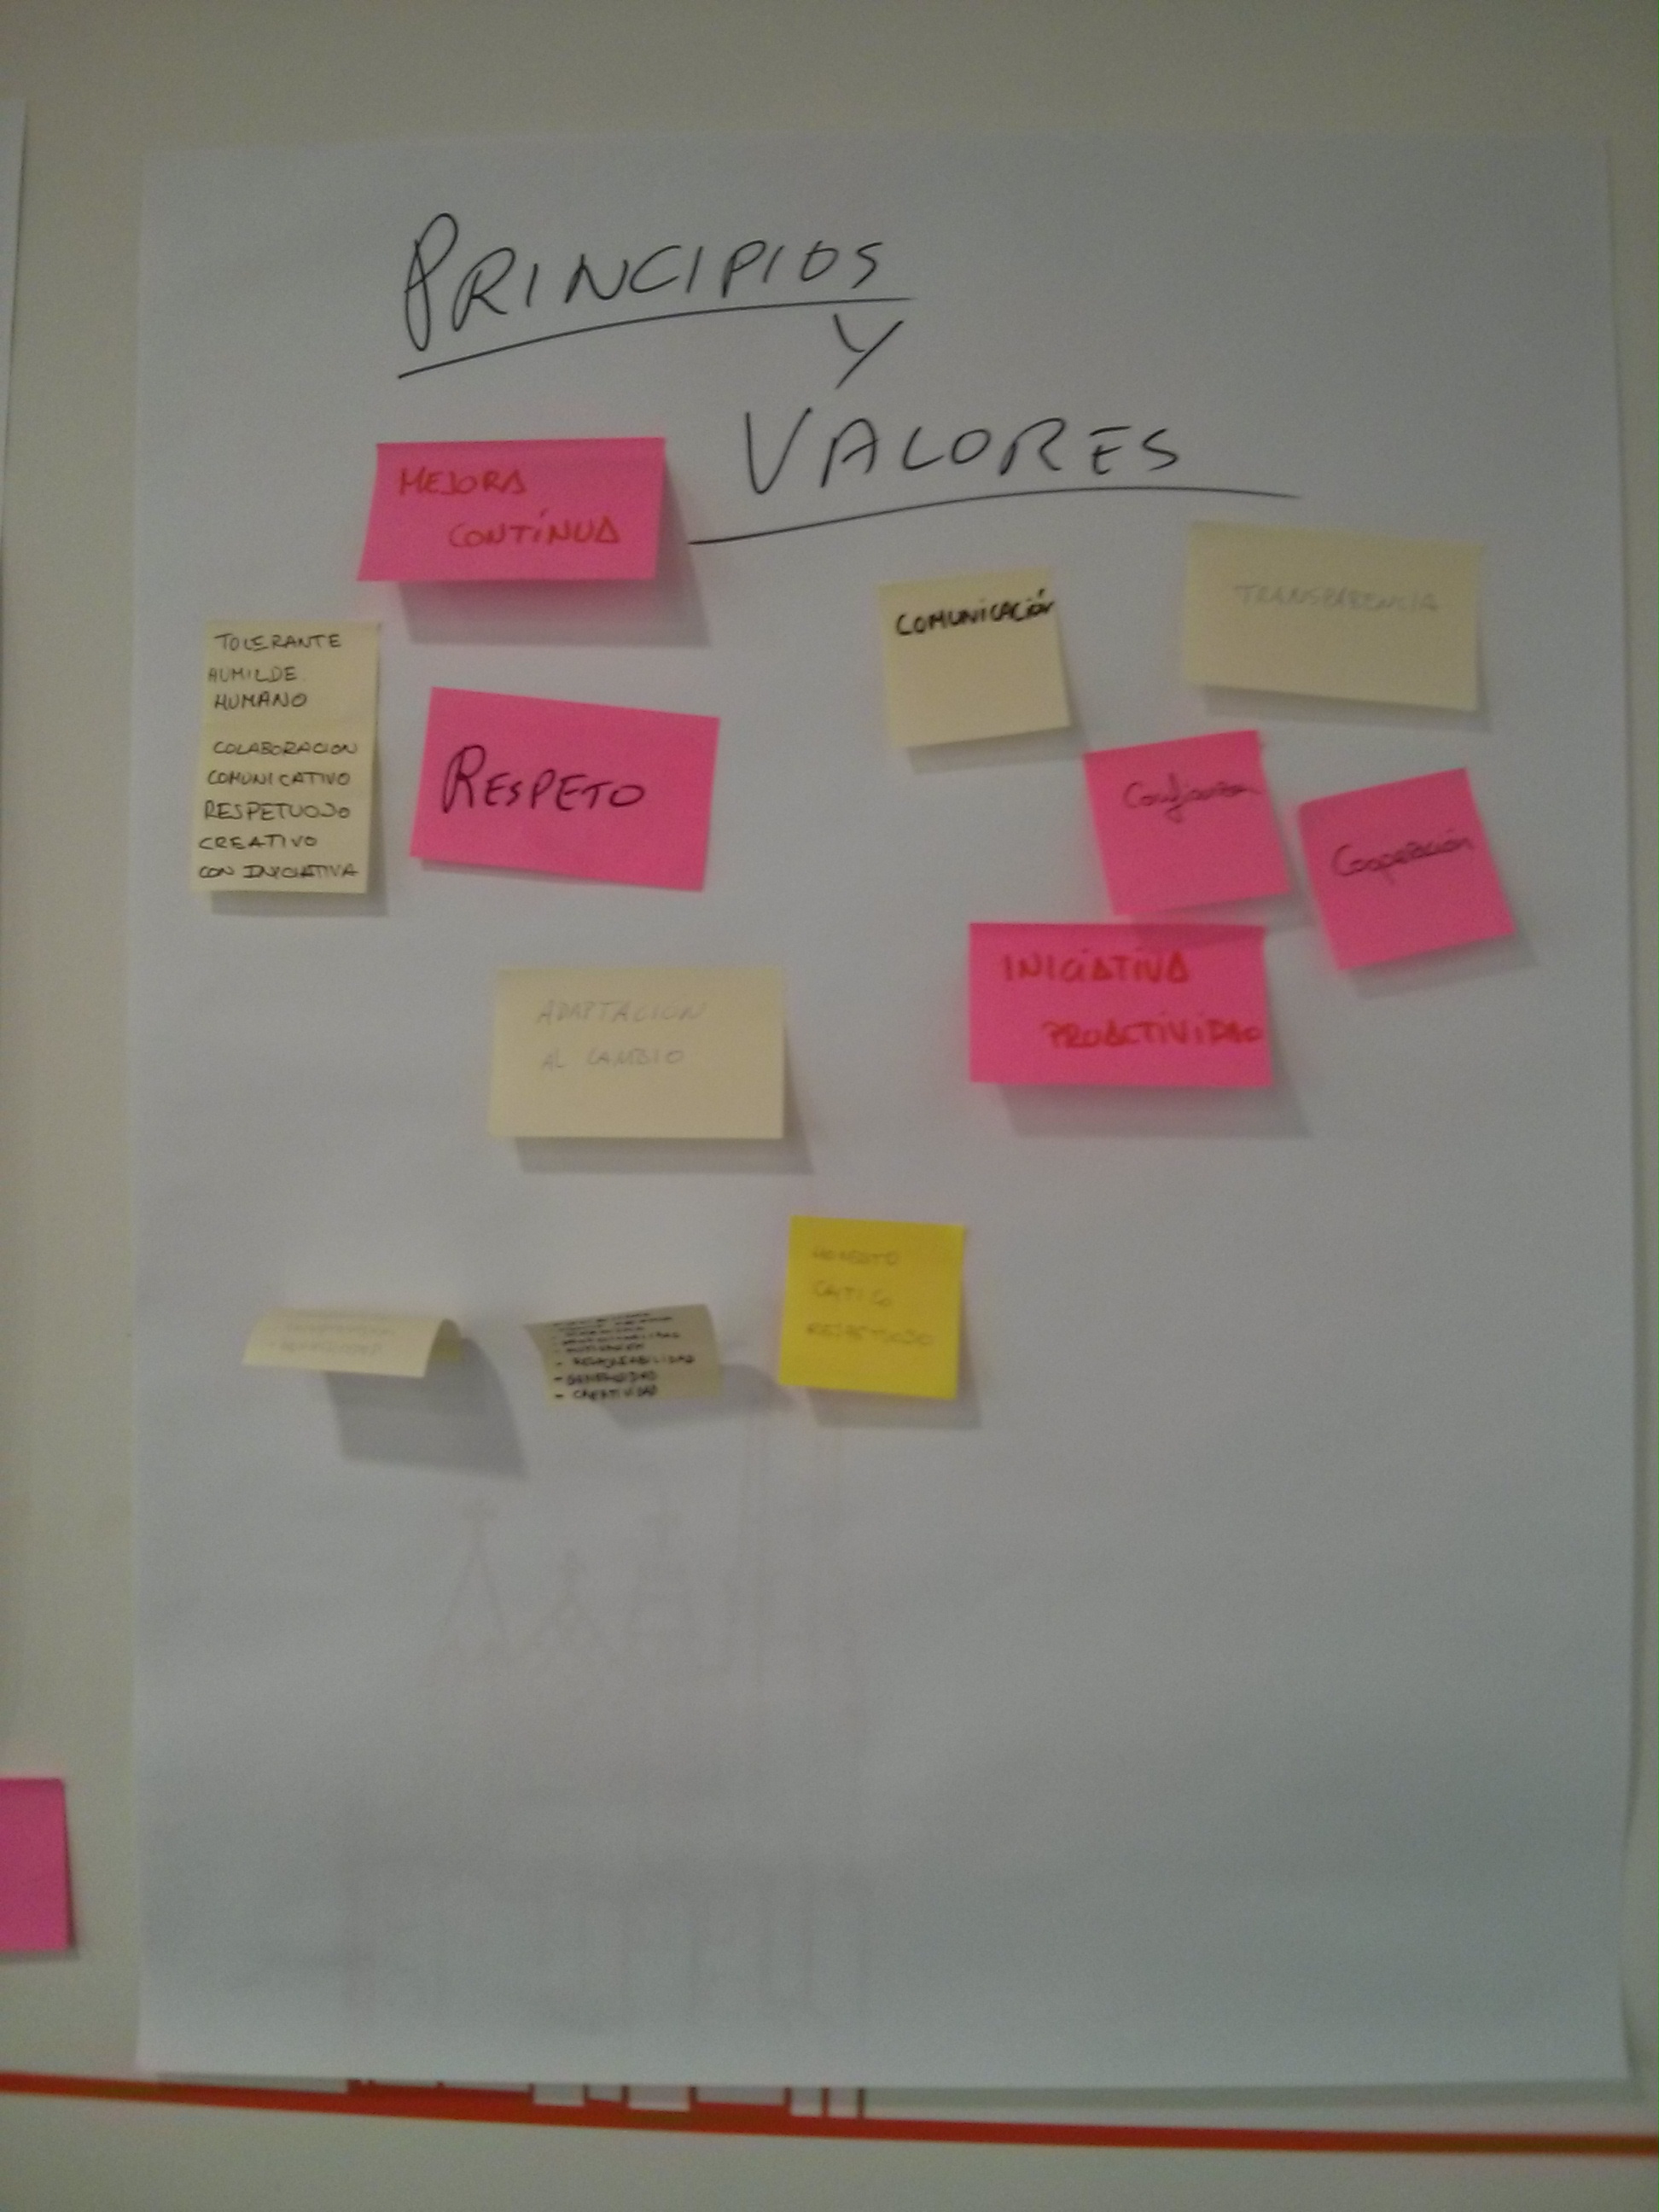 PRINCIPIOS
Y
VALORES
MEJORA
CONTÍNUA
TOLERANTE
HUMILDE.
HUMANO
COLABORACION
COMUNICATIVO
RESPETUOSO
CREATIVO
CON INICIATIVA
RESPETO
COMUNICACIÓN
TRANSPARENCIA
Confianza
Cooperación
INICIATIVA
PROACTIVIDAD
ADAPTACION
AL CAMBIO
HONESTO
RESPETUOSO
- GENEROSIDAD
- CREATIVIDAD